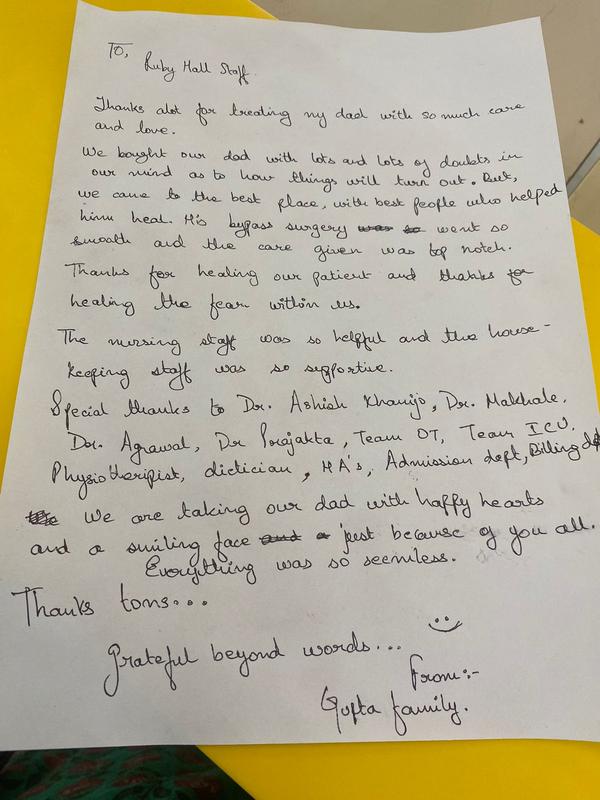 To,
Ruby Hall Staff
Thanks alot for treating my dad with so much care
and love.
We bought our dad with lots and lots of doubts in
our mind as to how things will turn out. But,
we came to the best place, with best people who helped
him heal. His bypass surgery went so
smooth and the care given was top notch.
Thanks for healing our patient and thanks for
healing the fear within us.
The nursing staff was so helpful and the house-
keeping staff was so supportive.
Special thanks to Dr. Ashish Khanijo, Dr. Makhale,
Dr. Agrawal, Dr Prajakta, Team OT, Team ICU,
Physiotheripist, dietician, MA's, Admission dept, Billing dept
We are taking our dad with happy hearts
and a smiling face just because of you all.
Everything was so seemless.
Thanks tons...
Grateful beyond words...
From:-
Gupta family.